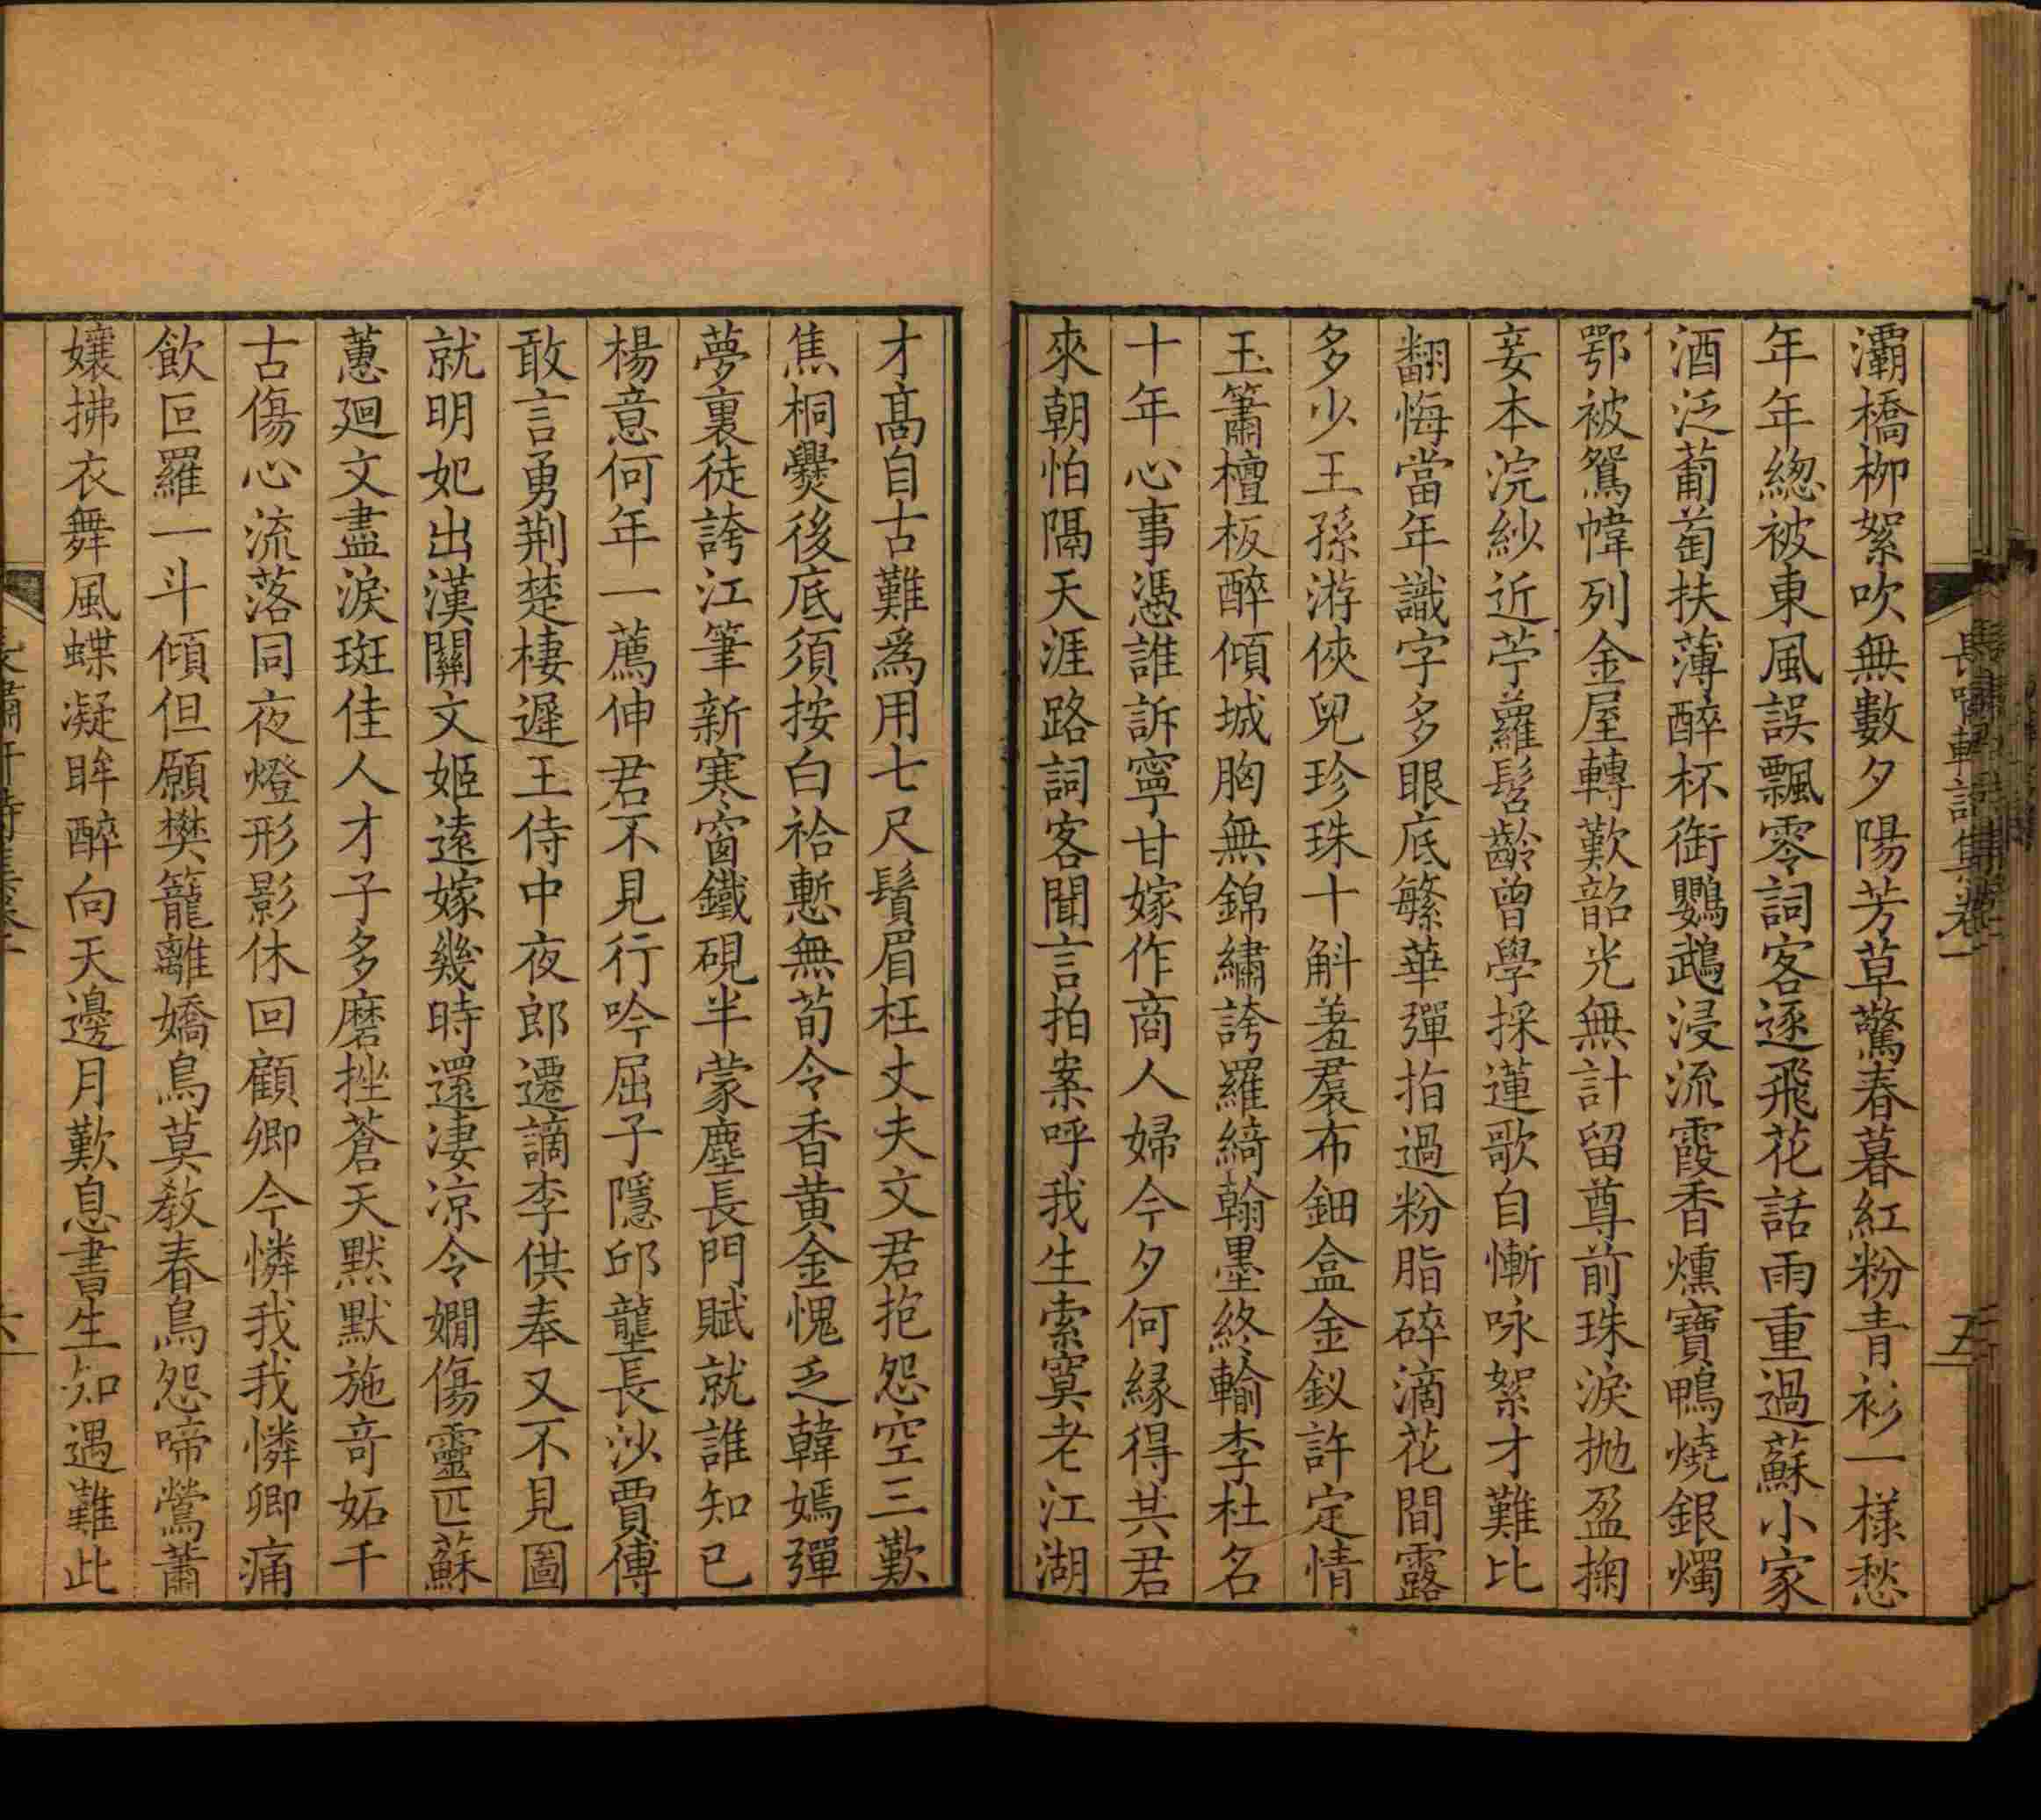 灞橋柳絮吹無數夕陽芳草驚春暮紅粉青衫一樣愁
年年總被東風誤飄零詞客逐飛花話雨重過蘇小家
酒泛葡萄扶薄醉杯銜鸚鵡浸流霞香燻寶鴨燒銀燭
鄂被鴛幃列金屋轉歎韶光無計留尊前珠淚拋盈掬
妾本浣紗近苧蘿髫齡曾學採蓮歌自慚咏絮才難比
翻悔當年識字多眼底繁華彈指過粉脂碎滴花間露
多少王孫游俠兒珍珠十斛羞裙布鈿盒金釵許定情
玉簫檀板醉傾城胸無錦繡誇羅綺翰墨終輸李杜名
十年心事憑誰訴寧甘嫁作商人婦今夕何緣得共君
來朝怕隔天涯路詞客聞言拍案呼我生索寞老江湖
長嘯軒詩集卷一
五
才高自古難爲用七尺鬚眉枉丈夫文君抱怨空三歎
焦桐爨後底須按白袷慙無荀令香黃金愧乏韓嫣彈
夢裏徒誇江筆新寒窗鐵硯半蒙塵長門賦就誰知己
楊意何年一薦伸君不見行吟屈子隱邱壟長沙賈傅
敢言勇荆楚棲遲王侍中夜郎遷謫李供奉又不見圖
就明妃出漢關文姬遠嫁幾時還淒凉令嫺傷靈匹蘇
蕙廻文盡淚斑佳人才子多磨挫蒼天默默施奇妬千
古傷心流落同夜燈形影休回顧卿今憐我我憐卿痛
飲叵羅一斗傾但願樊籠離嬌鳥莫教春鳥怨啼鶯蕭
孃拂衣舞風蝶凝眸醉向天邊月歎息書生知遇難此